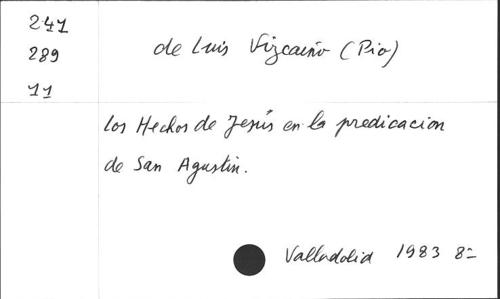 241
289
11
de Luis Vizcaíno (Pio)
Los Hechos de Jesús en la predicacion
de San Agustin.
Valladolid 1983 8=